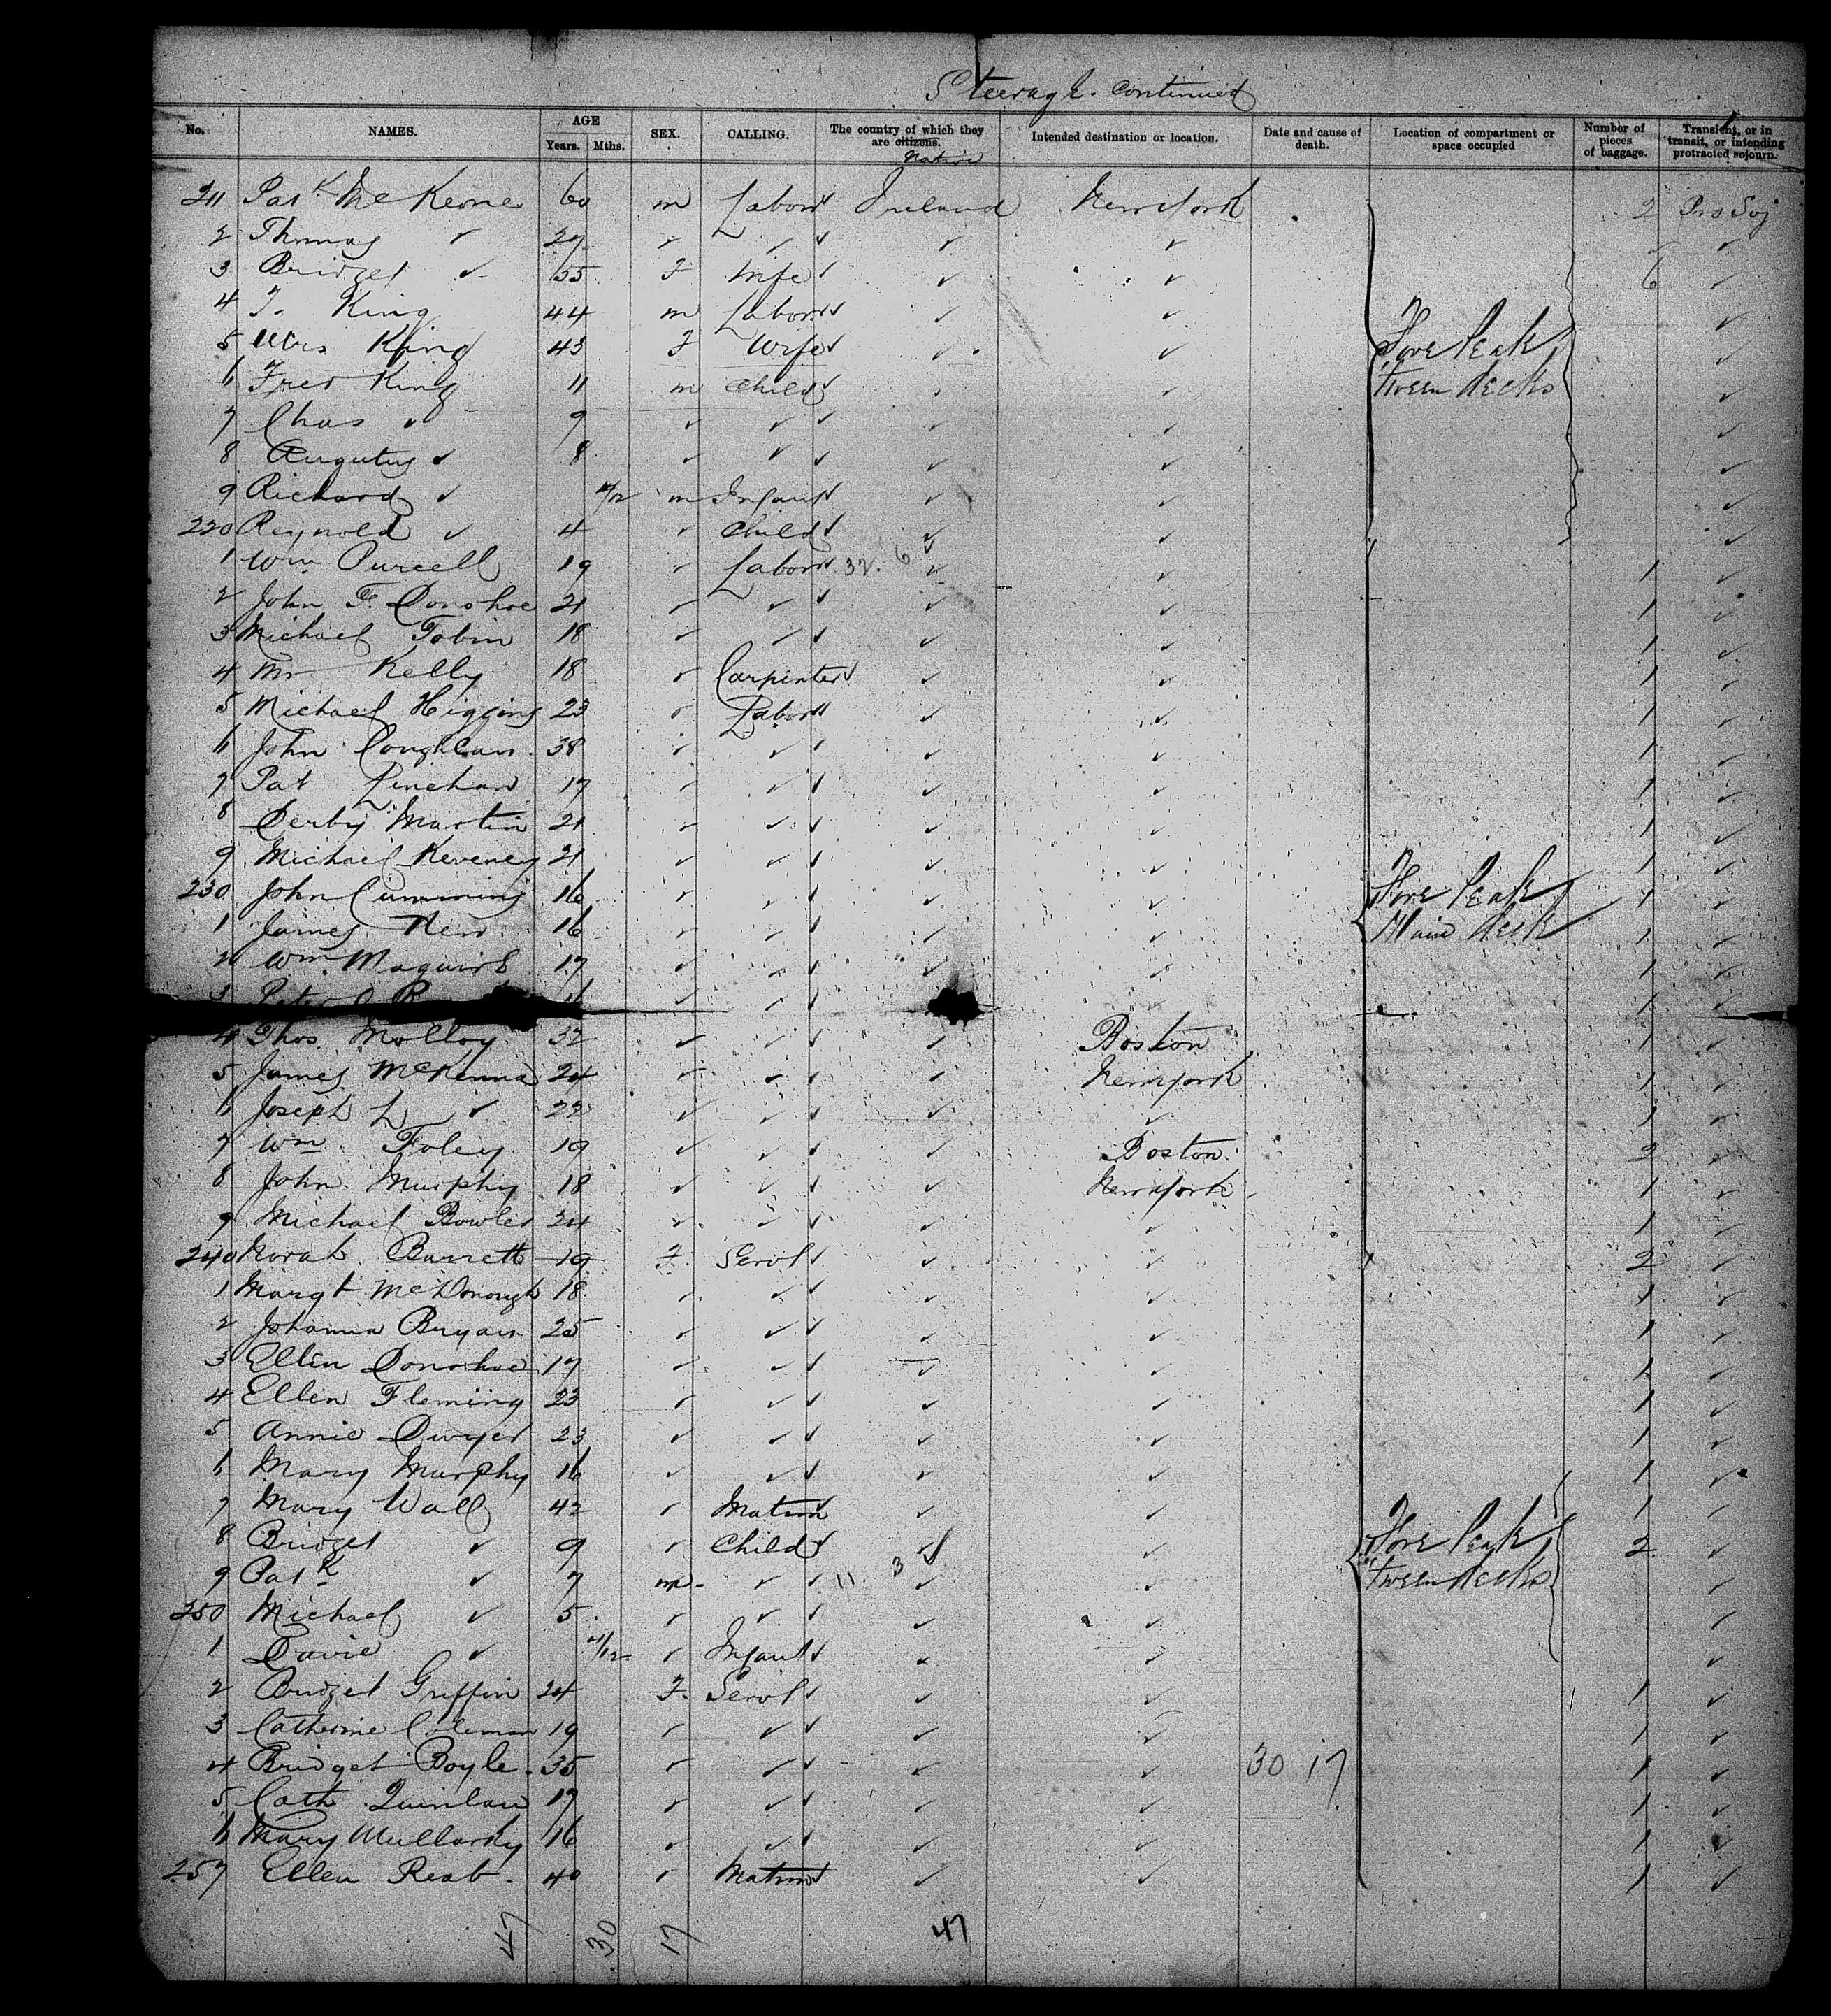 Steerage. Continued
No. NAMES. AGE Years. Mths. SEX. CALLING. The country of which they are citizens. Native Intended destination or location. Date and cause of death. Location of compartment or space occupied Number of pieces of baggage. Transient, or in transit, or intending protracted sojourn.
211 Patk McKeone 60 m Labor Ireland New York 2 Pro Soj
2 Thomas ✓ 27 ✓ ✓ ✓ ✓ ✓ ✓
3 Bridget ✓ 55 F Wife ✓ ✓ ✓ 6 ✓
4 J. King 44 m Labor ✓ ✓ ✓
5 Mrs King 43 F Wife ✓ ✓ Fore Peak ✓
6 Fred King 11 m Child ✓ ✓ 'tween decks ✓
7 Chas ✓ 9 ✓ ✓ ✓ ✓ ✓ ✓
8 Augutus ✓ 8 ✓ ✓ ✓ ✓ ✓ ✓
9 Richard ✓ m Infant ✓ ✓ ✓
220 Reynold ✓ 4 ✓ Child ✓ ✓ ✓ ✓
1 Wm Purcell 19 ✓ Labor 32. 6 ✓ ✓ 1 ✓
2 John F. Donohoe 21 ✓ ✓ ✓ ✓ ✓ 1 ✓
3 Michael Tobin 18 ✓ ✓ ✓ ✓ ✓ 1 ✓
4 Mr Kelly 18 ✓ Carpenter ✓ ✓ 1 ✓
5 Michael Higgins 23 ✓ Labor ✓ ✓ 1 ✓
6 John Coughlan 38 ✓ ✓ ✓ ✓ ✓ 1 ✓
7 Pat Linehan 17 ✓ ✓ ✓ ✓ ✓ 1 ✓
8 Derby Martin 21 ✓ ✓ ✓ ✓ ✓ 1 ✓
9 Michael Keveney 21 ✓ ✓ ✓ ✓ ✓ 1 ✓
230 John Cummins 16 ✓ ✓ ✓ ✓ ✓ Fore Peak 1 ✓
1 James 16 ✓ ✓ ✓ ✓ ✓ Main deck 1 ✓
2 Wm Maguire 17 ✓ ✓ ✓ ✓ ✓ 1 ✓
3 Peter ✓ ✓ ✓ 1 ✓
4 Thos. Molloy 32 ✓ ✓ ✓ ✓ Boston 1 ✓
5 James McKenna 24 ✓ ✓ ✓ ✓ New York 1 ✓
6 Joseph L ✓ 22 ✓ ✓ ✓ ✓ ✓ 1 ✓
7 Wm Foley 19 ✓ ✓ ✓ ✓ Boston 2 ✓
8 John Murphy 18 ✓ ✓ ✓ ✓ New York 1 ✓
9 Michael Bowler 24 ✓ ✓ ✓ ✓ ✓ 1 ✓
240 Norah Barrett 19 F Servt ✓ ✓ ✓ 2 ✓
1 Margt McDonough 18 ✓ ✓ ✓ ✓ ✓ 1 ✓
2 Johanna Bryan 25 ✓ ✓ ✓ ✓ ✓ 1 ✓
3 Ellen Donohoe 17 ✓ ✓ ✓ ✓ ✓ 1 ✓
4 Ellen Fleming 23 ✓ ✓ ✓ ✓ ✓ 1 ✓
5 Annie Dwyer 23 ✓ ✓ ✓ ✓ ✓ 1 ✓
6 Mary Murphy 16 ✓ ✓ ✓ ✓ ✓ 1 ✓
7 Mary Wall 42 ✓ Matron ✓ ✓ 1 ✓
8 Bridget ✓ 9 ✓ Child ✓ ✓ Fore Peak 2 ✓
9 Patk ✓ 7 m ✓ ✓ 11. 3 ✓ ✓ 'tween decks ✓
250 Michael ✓ 5 ✓ ✓ ✓ ✓ ✓ ✓
1 Davie ✓ ✓ Infant ✓ ✓ ✓
2 Bridget Griffin 24 F. Servt ✓ ✓ ✓ 1 ✓
3 Catherine Coleman 19 ✓ ✓ ✓ ✓ ✓ 1 ✓
4 Bridget Boyle 35 ✓ ✓ ✓ ✓ ✓ 30 17 1 ✓
5 Cath Quinlan 17 ✓ ✓ ✓ ✓ ✓ 1 ✓
6 Mary Mullarky 16 ✓ ✓ ✓ ✓ ✓ 1 ✓
257 Ellen 40 ✓ Matron ✓ ✓ 1 ✓
47 30 17 47